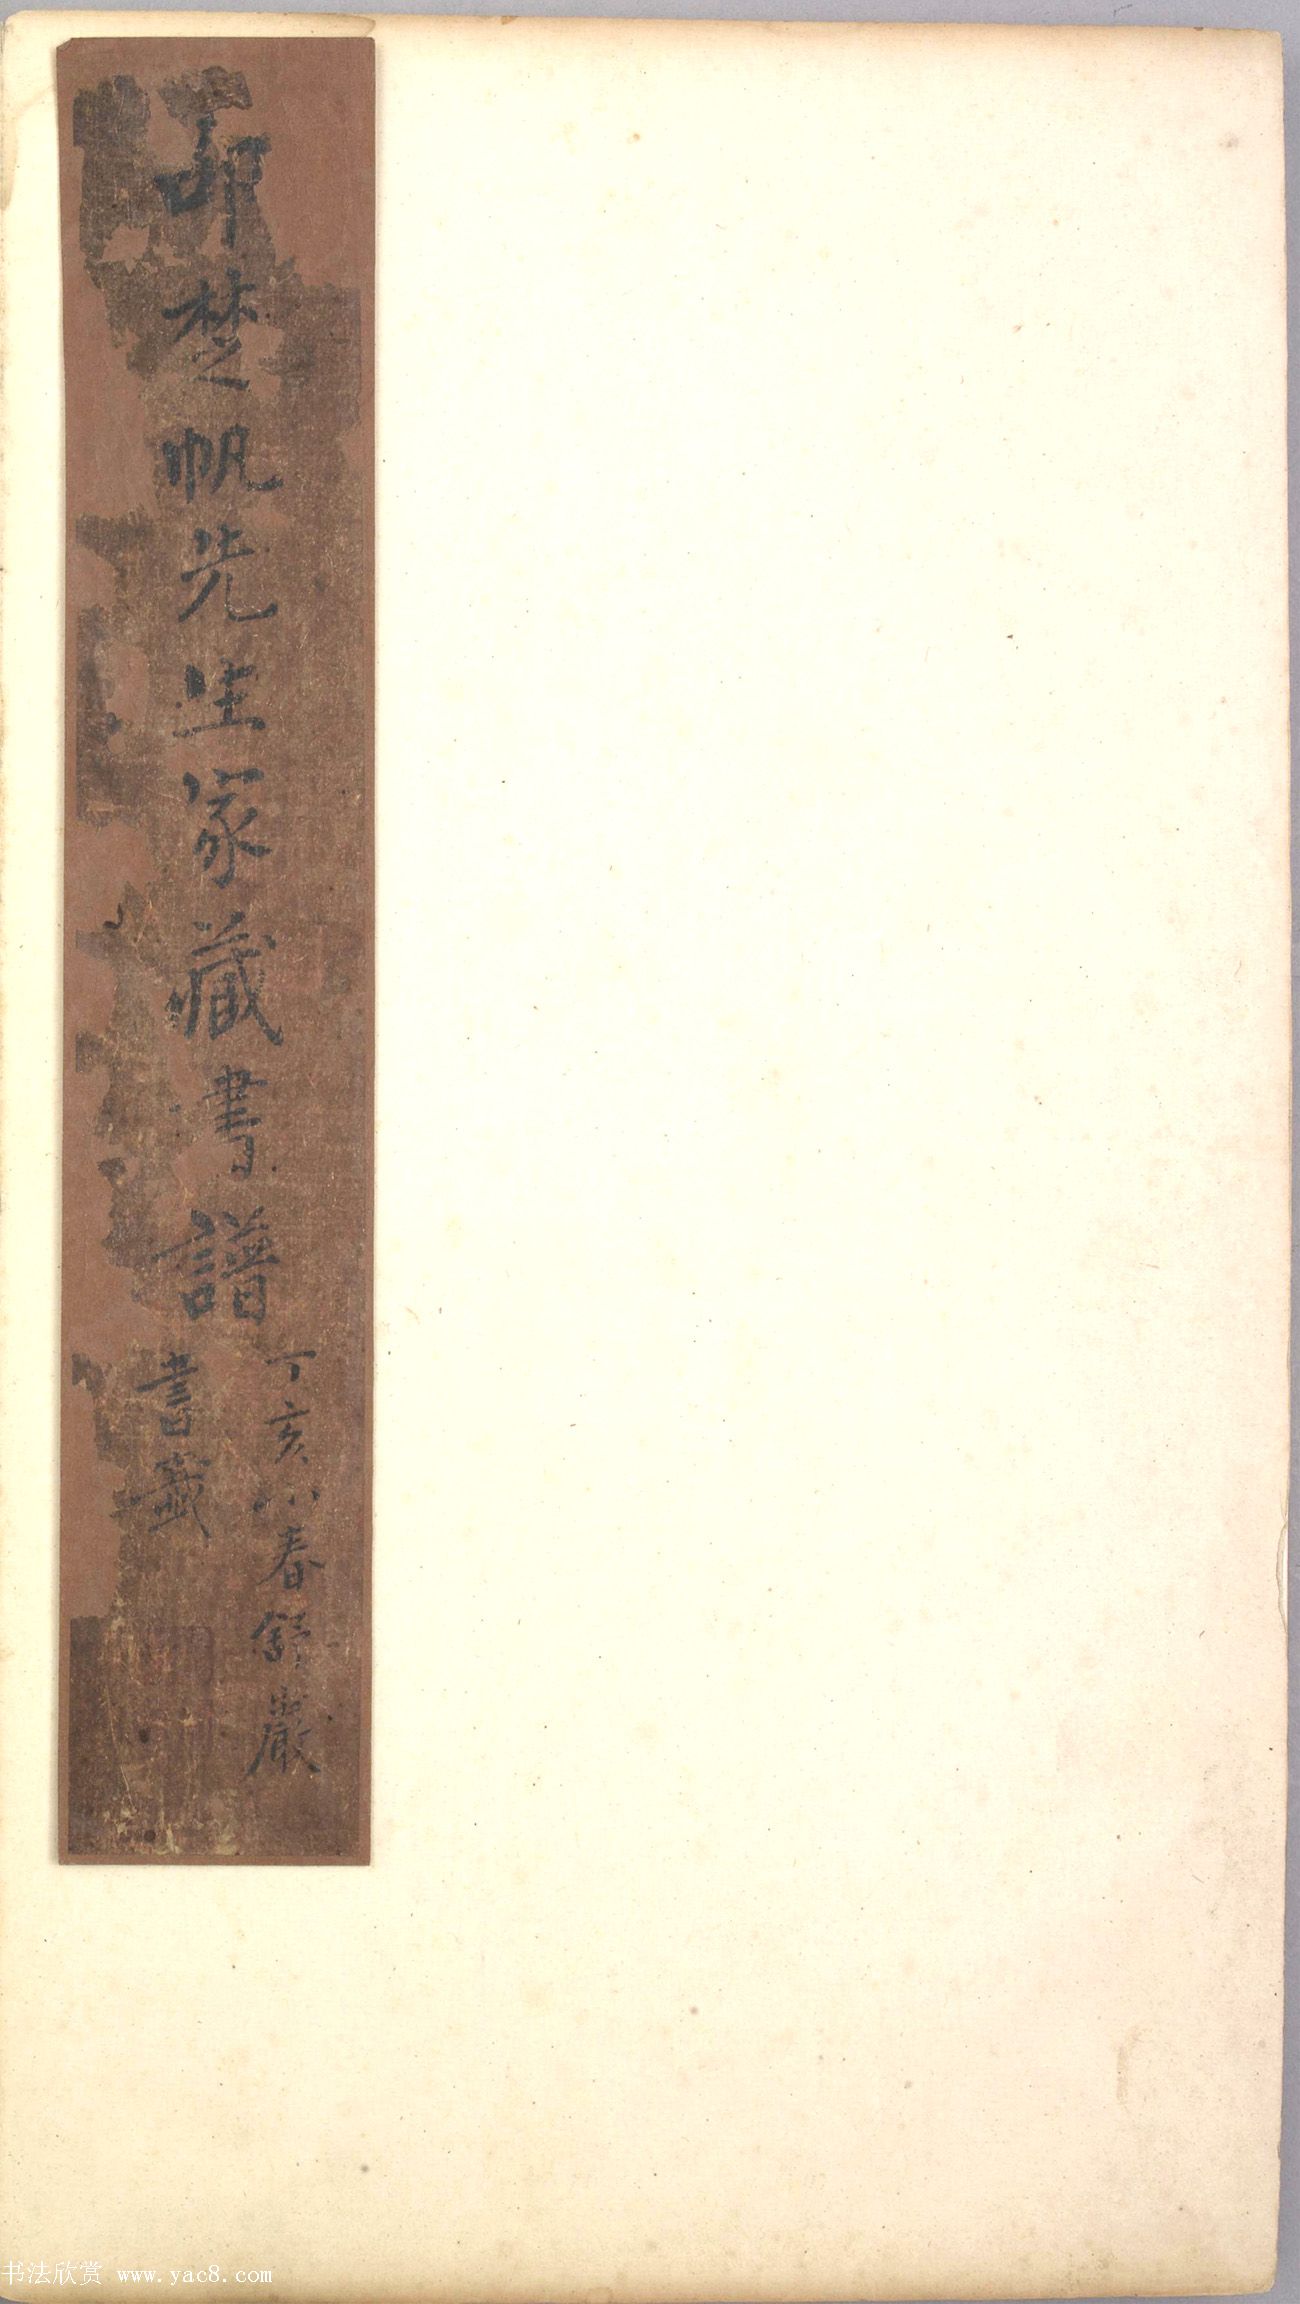 邵楚帆先生家藏書譜
丁亥小春舒巖
書籤
书法欣赏 www.yac8.com